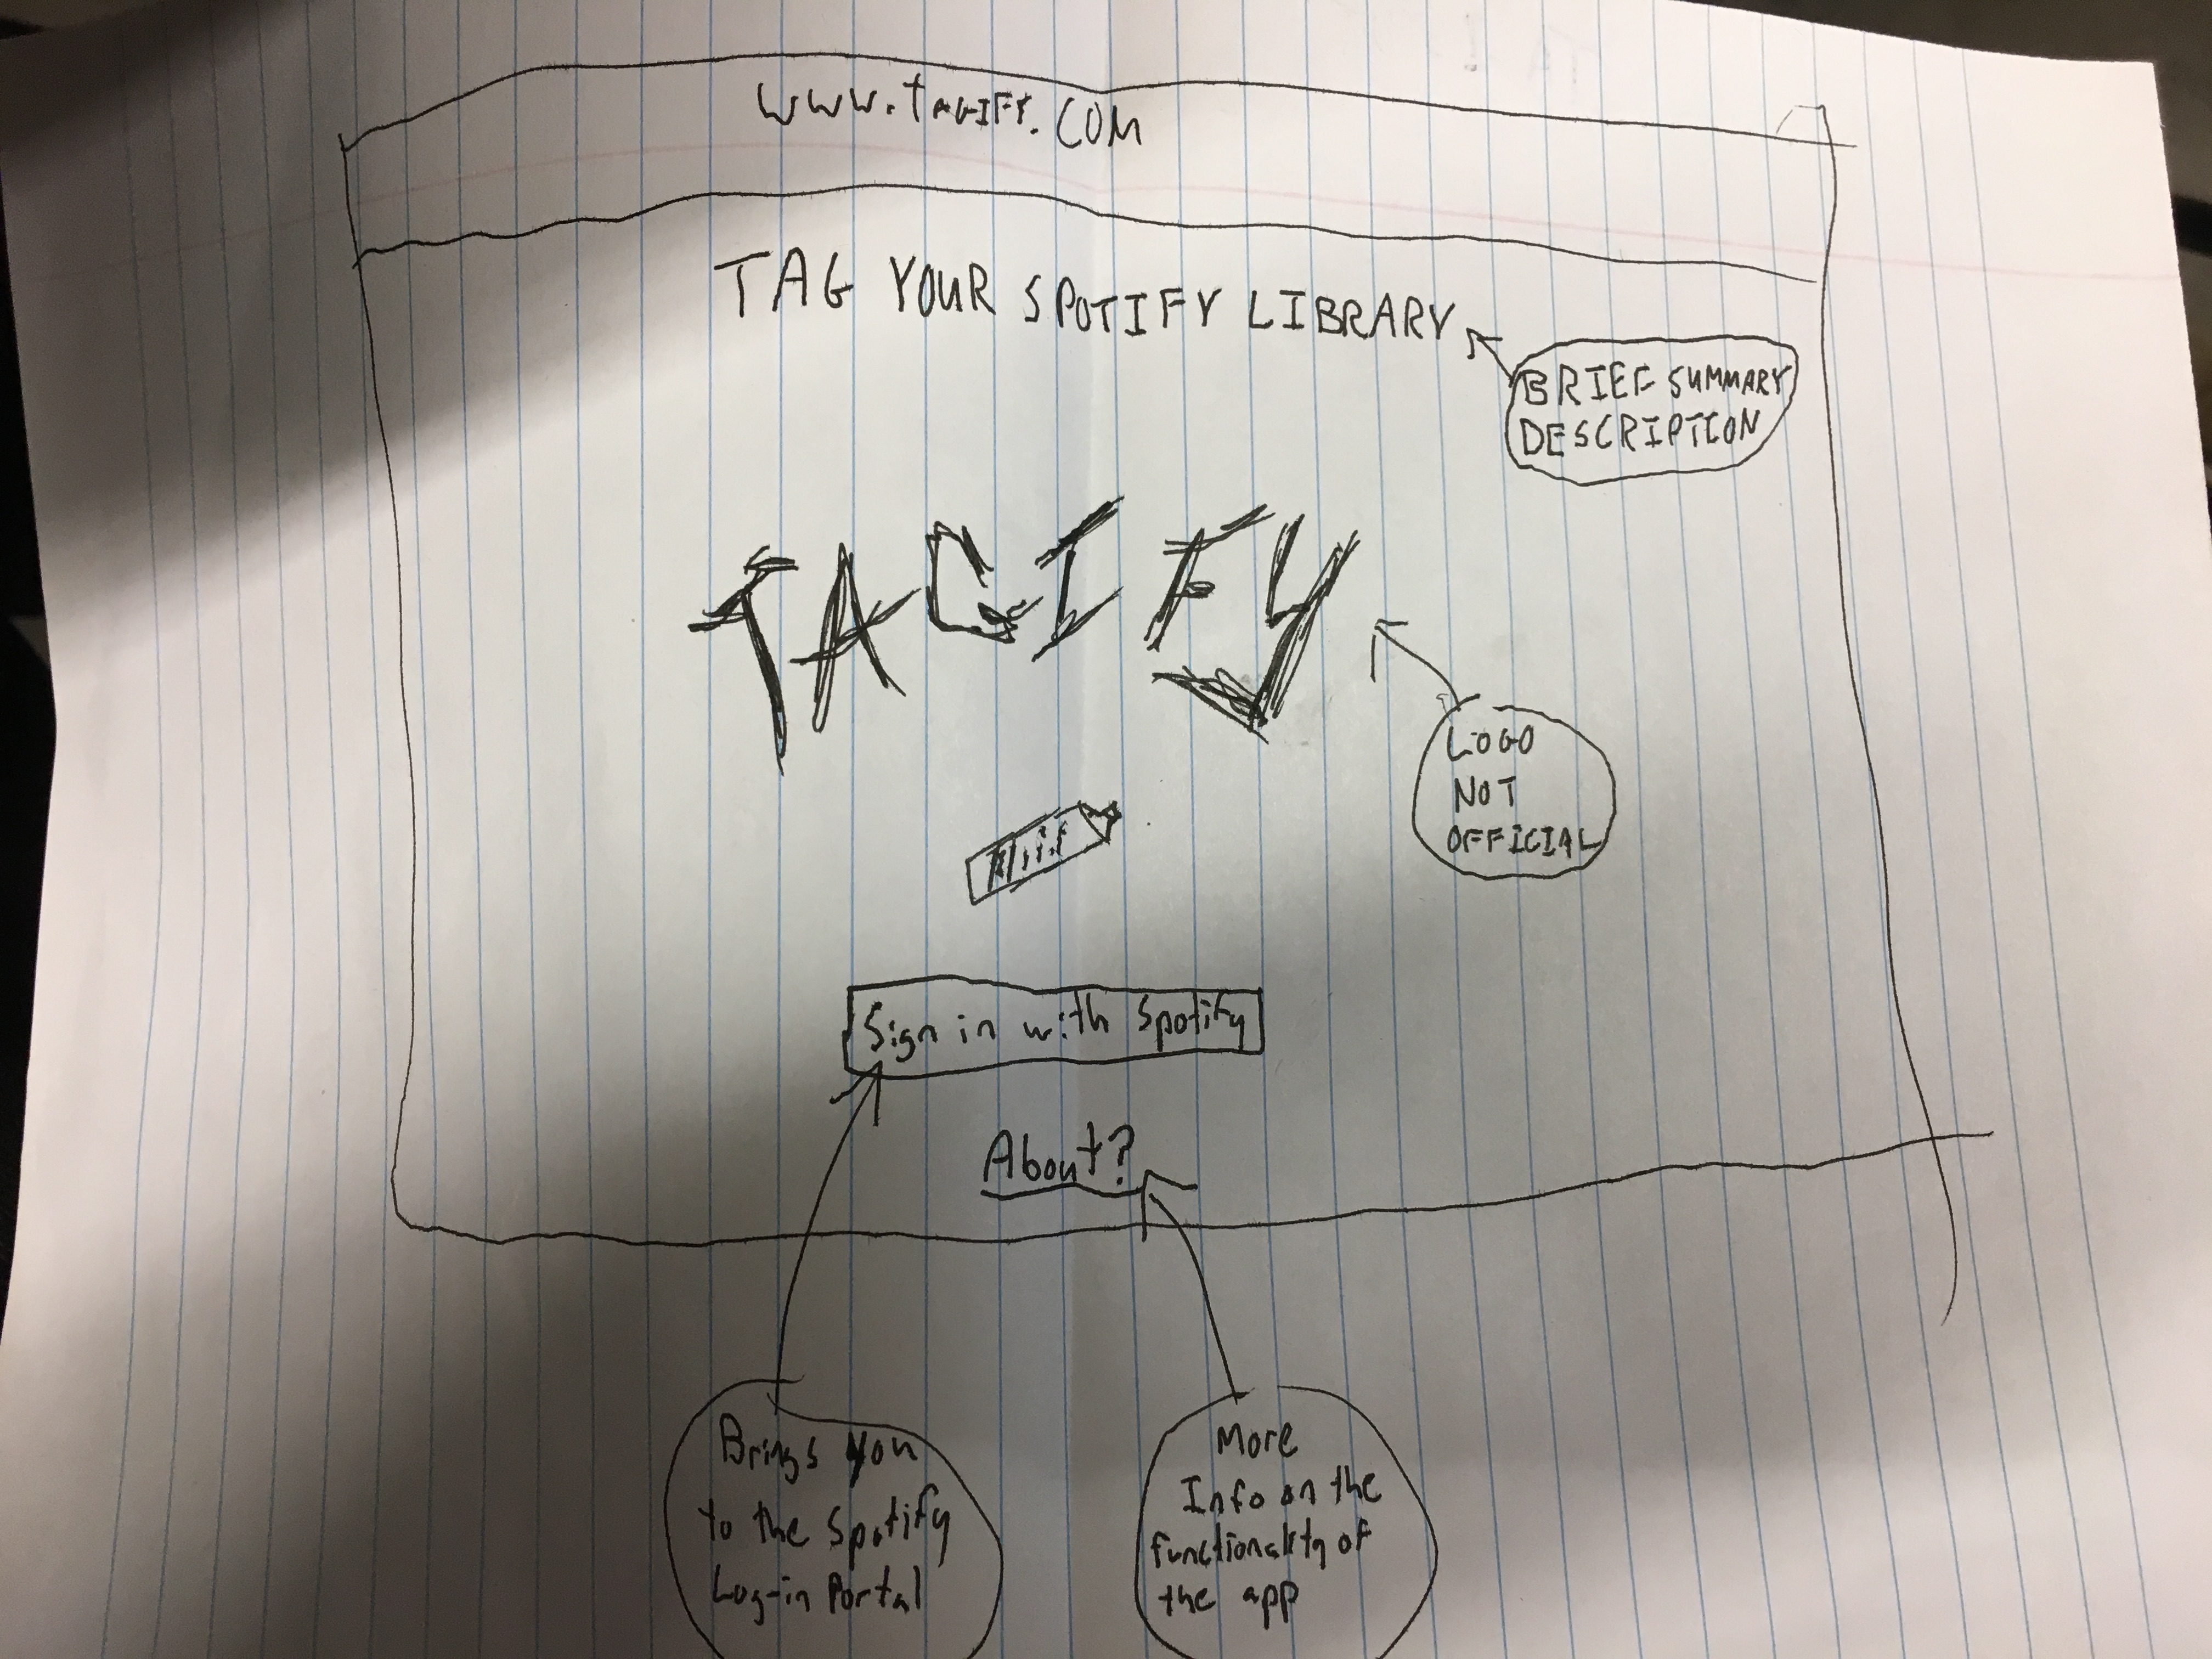 www.TAGIFY.COM
TAG YOUR SPOTIFY LIBRARY
BRIEF SUMMARY
DESCRIPTION
TAGIFY
LOGO
NOT
OFFICIAL
Sign in with Spotify
About?
Brings you
to the Spotify
Log-in Portal
More
Info on the
functionality of
the app